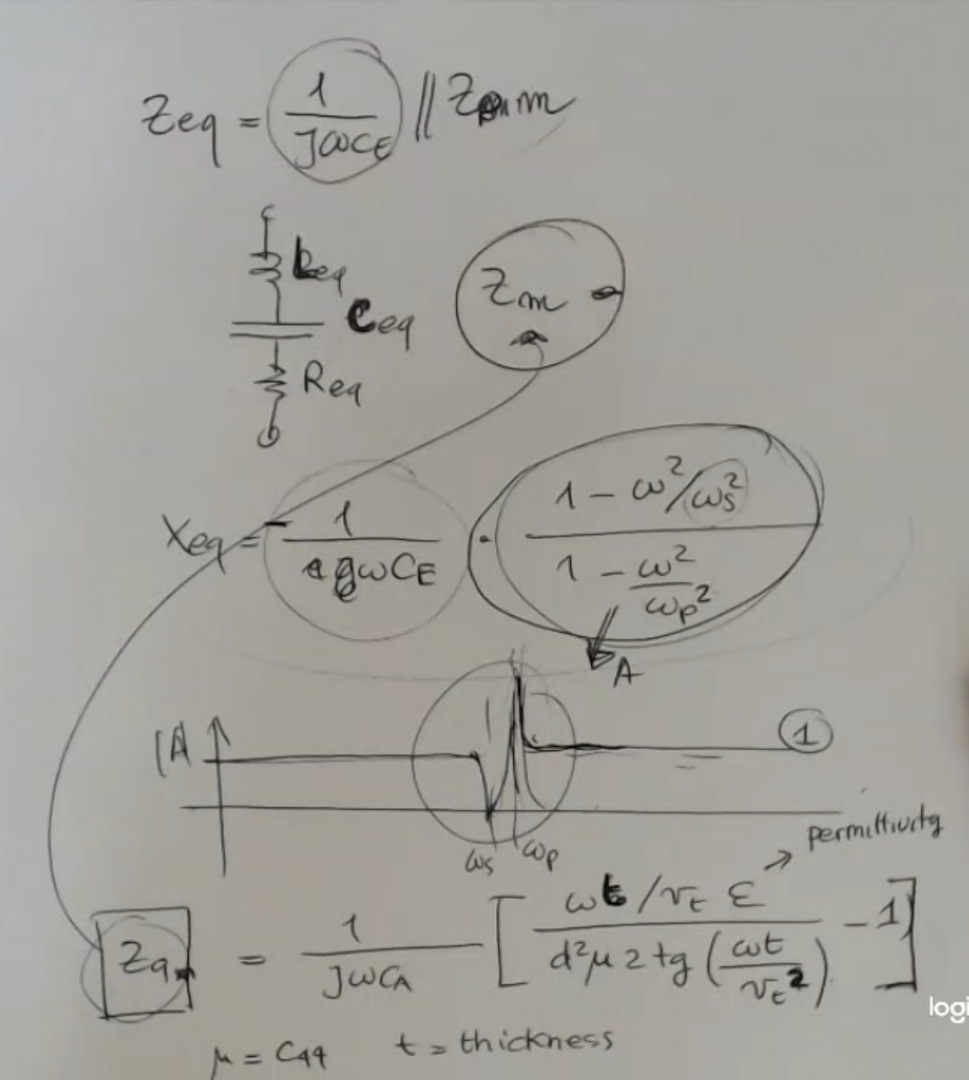 Zeq = 1/(JωC_E) || Zm
Leq
Ceq
Req
Zm
Xeq = 1/(ωC_E) · (1 - ω²/ωs²)/(1 - ω²/ωp²)
A
|A
1
ωs ωp
permittivity
Za = 1/(JωC_A) [ (ωt/v_t ε)/(d²μ 2 tg (ωt/v_t 2)) - 1 ]
μ = C44 t = thickness
logi